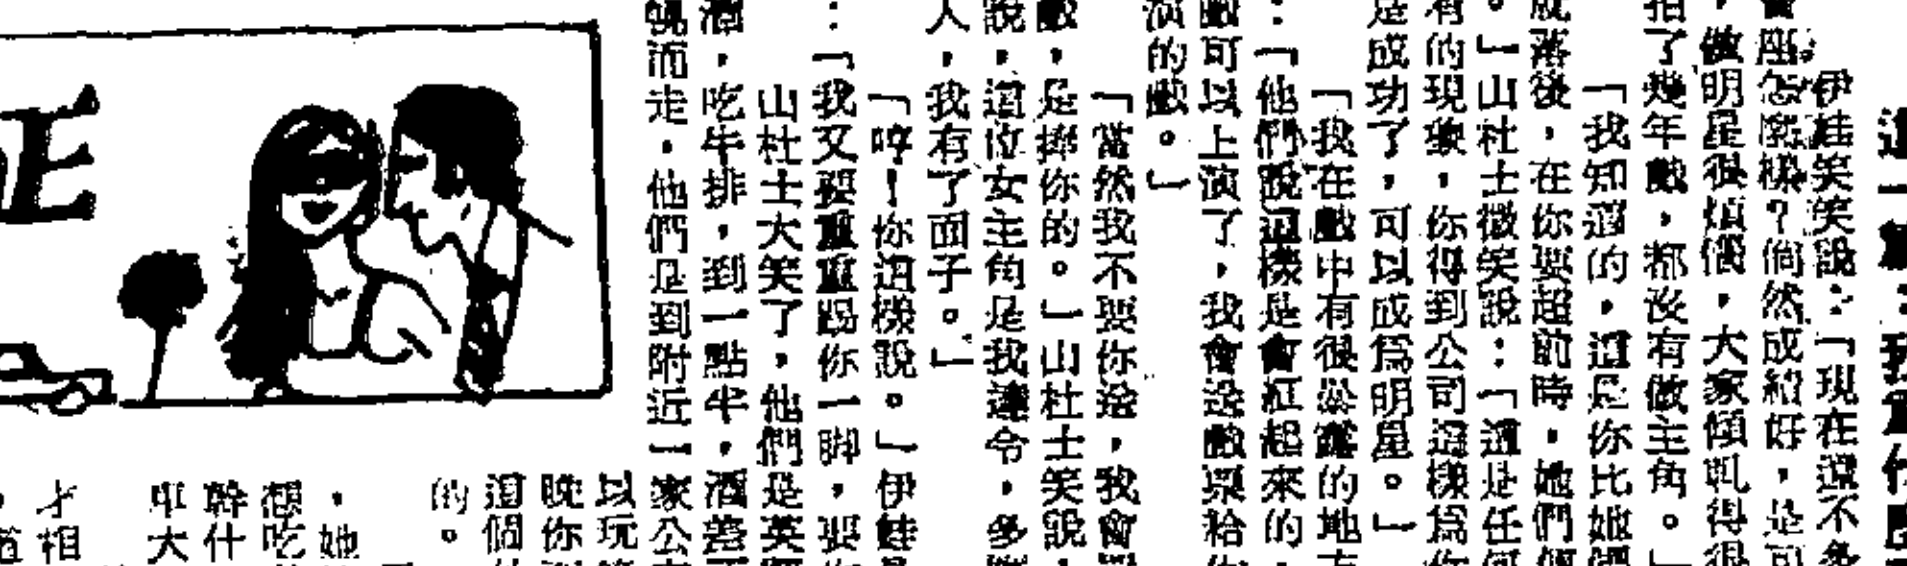 伊娃笑笑說：「現在還不多
座怎麼樣？倘然成績好，是可
，做明星很煩惱，大家傾軋得很
拍了幾年戲，都沒有做主角。」
「我知道的，這是你比她們
就落後，在你要超前時，她們便
。」山杜士微笑說：「這是任何
有的現象，你得到公司這樣爲你
是成功了，可以成爲明星。」
「我在戲中有很暴露的地方
：「他們說這樣是會紅起來的，
戲可以上演了，我會送戲票給你
演的戲。」
「當然我不要你送，我會買
戲，是捧你的。」山杜士笑說，
說，這位女主角是我達令，多
人，我有了面子。」
「哼！你這樣說。」伊娃
：「我又要重重踢你一脚，要
山杜士大笑了，他們是英
酒，吃牛排，到一點半，酒
而走，他們是到附近一家公
以玩
晚你
這個
的。
，她
想吃
幹什
車大
才相
DE